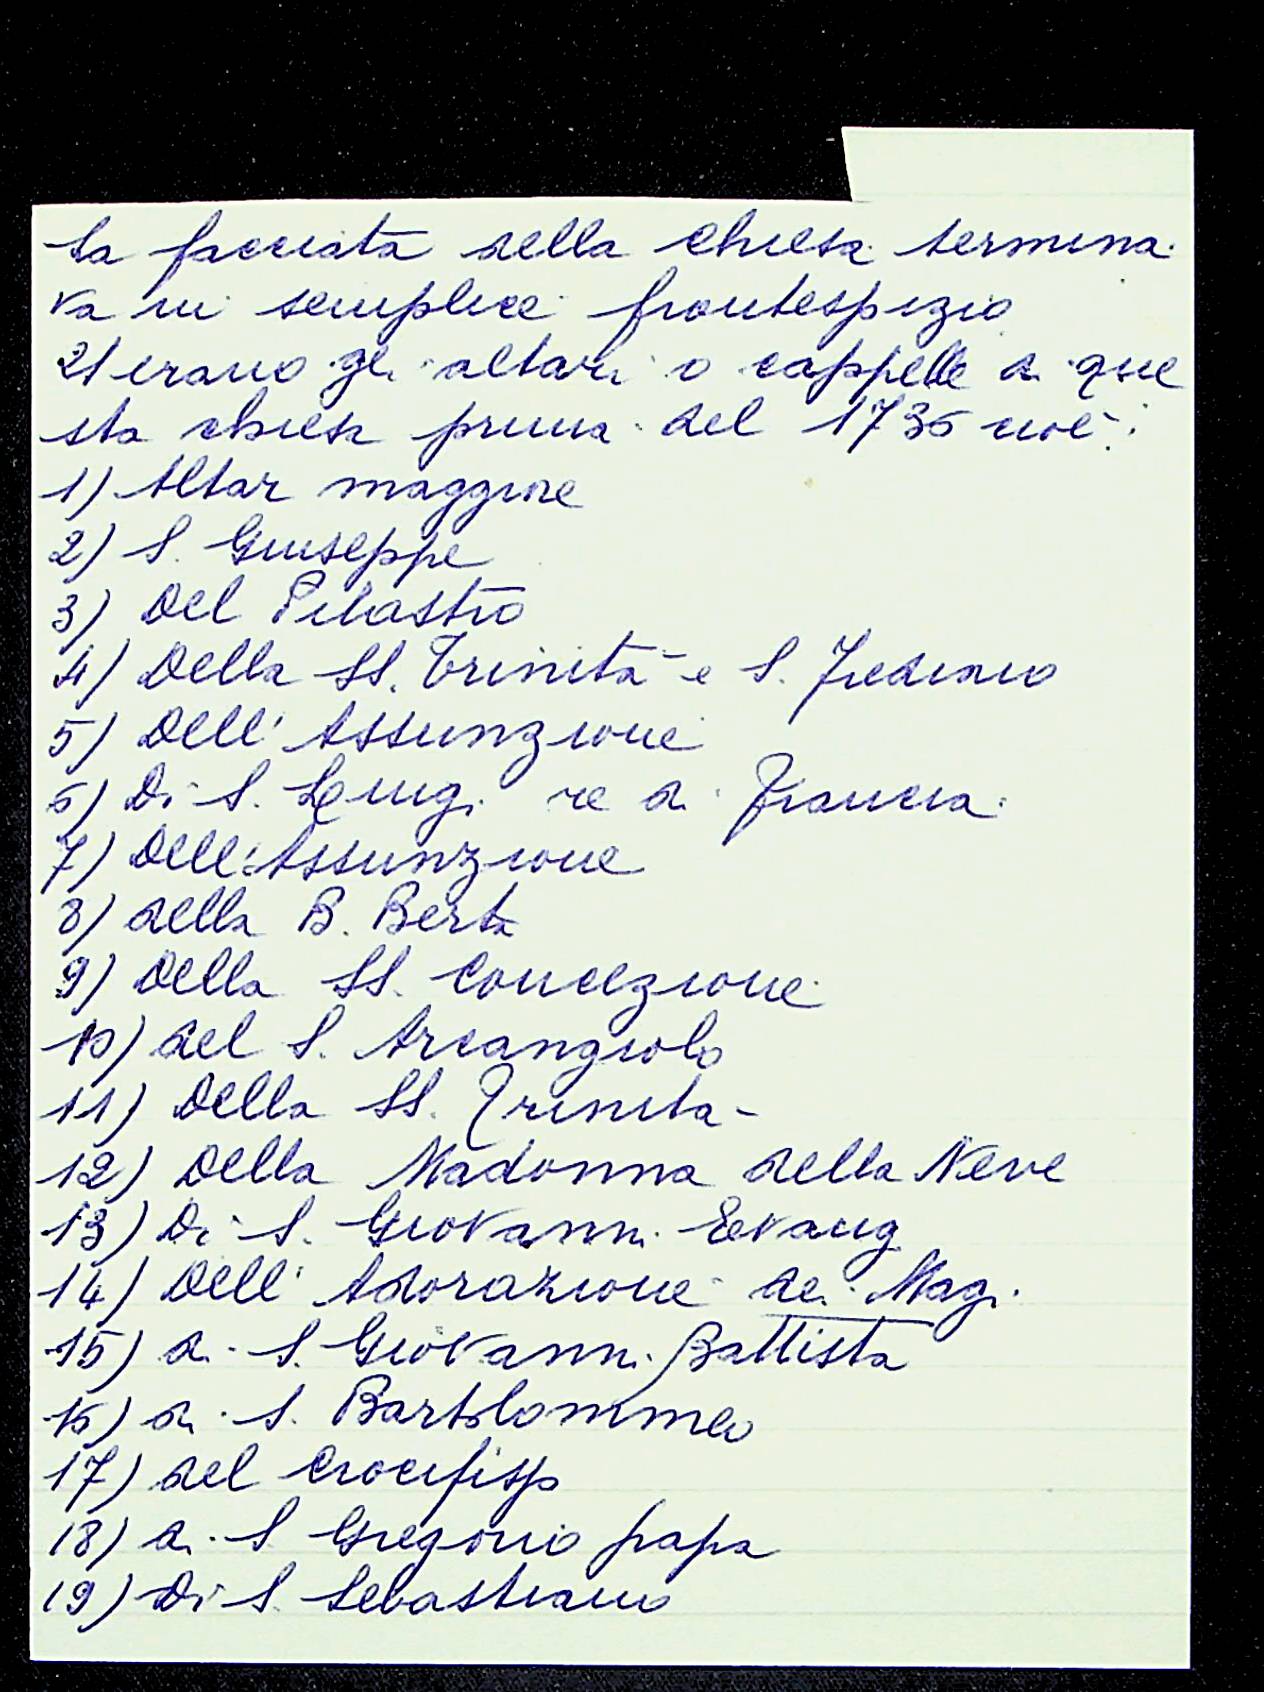 La facciata della chiesa termina
va in semplice frontespizio
21 erano gli altari o cappelle di que
sta chiesa prima del 1736 cioè:
1) Altar maggiore
2) S. Giuseppe
3) Del Pilastro
4) Della SS. Trinità e S. Frediano
5) Dell'Assunzione
6) Di S. Luigi re di Francia
7) Dell'Assunzione
8) della B. Berta
9) Della SS. Concezione
10) del S. Arcangiolo
11) Della SS. Trinità
12) Della Madonna della Neve
13) Di S. Giovanni Evang
14) Dell'Adorazione dei Magi
15) di S. Giovanni Battista
16) di S. Bartolommeo
17) del Crocifisso
18) di S Gregorio papa
19) Di S. Sebastiano